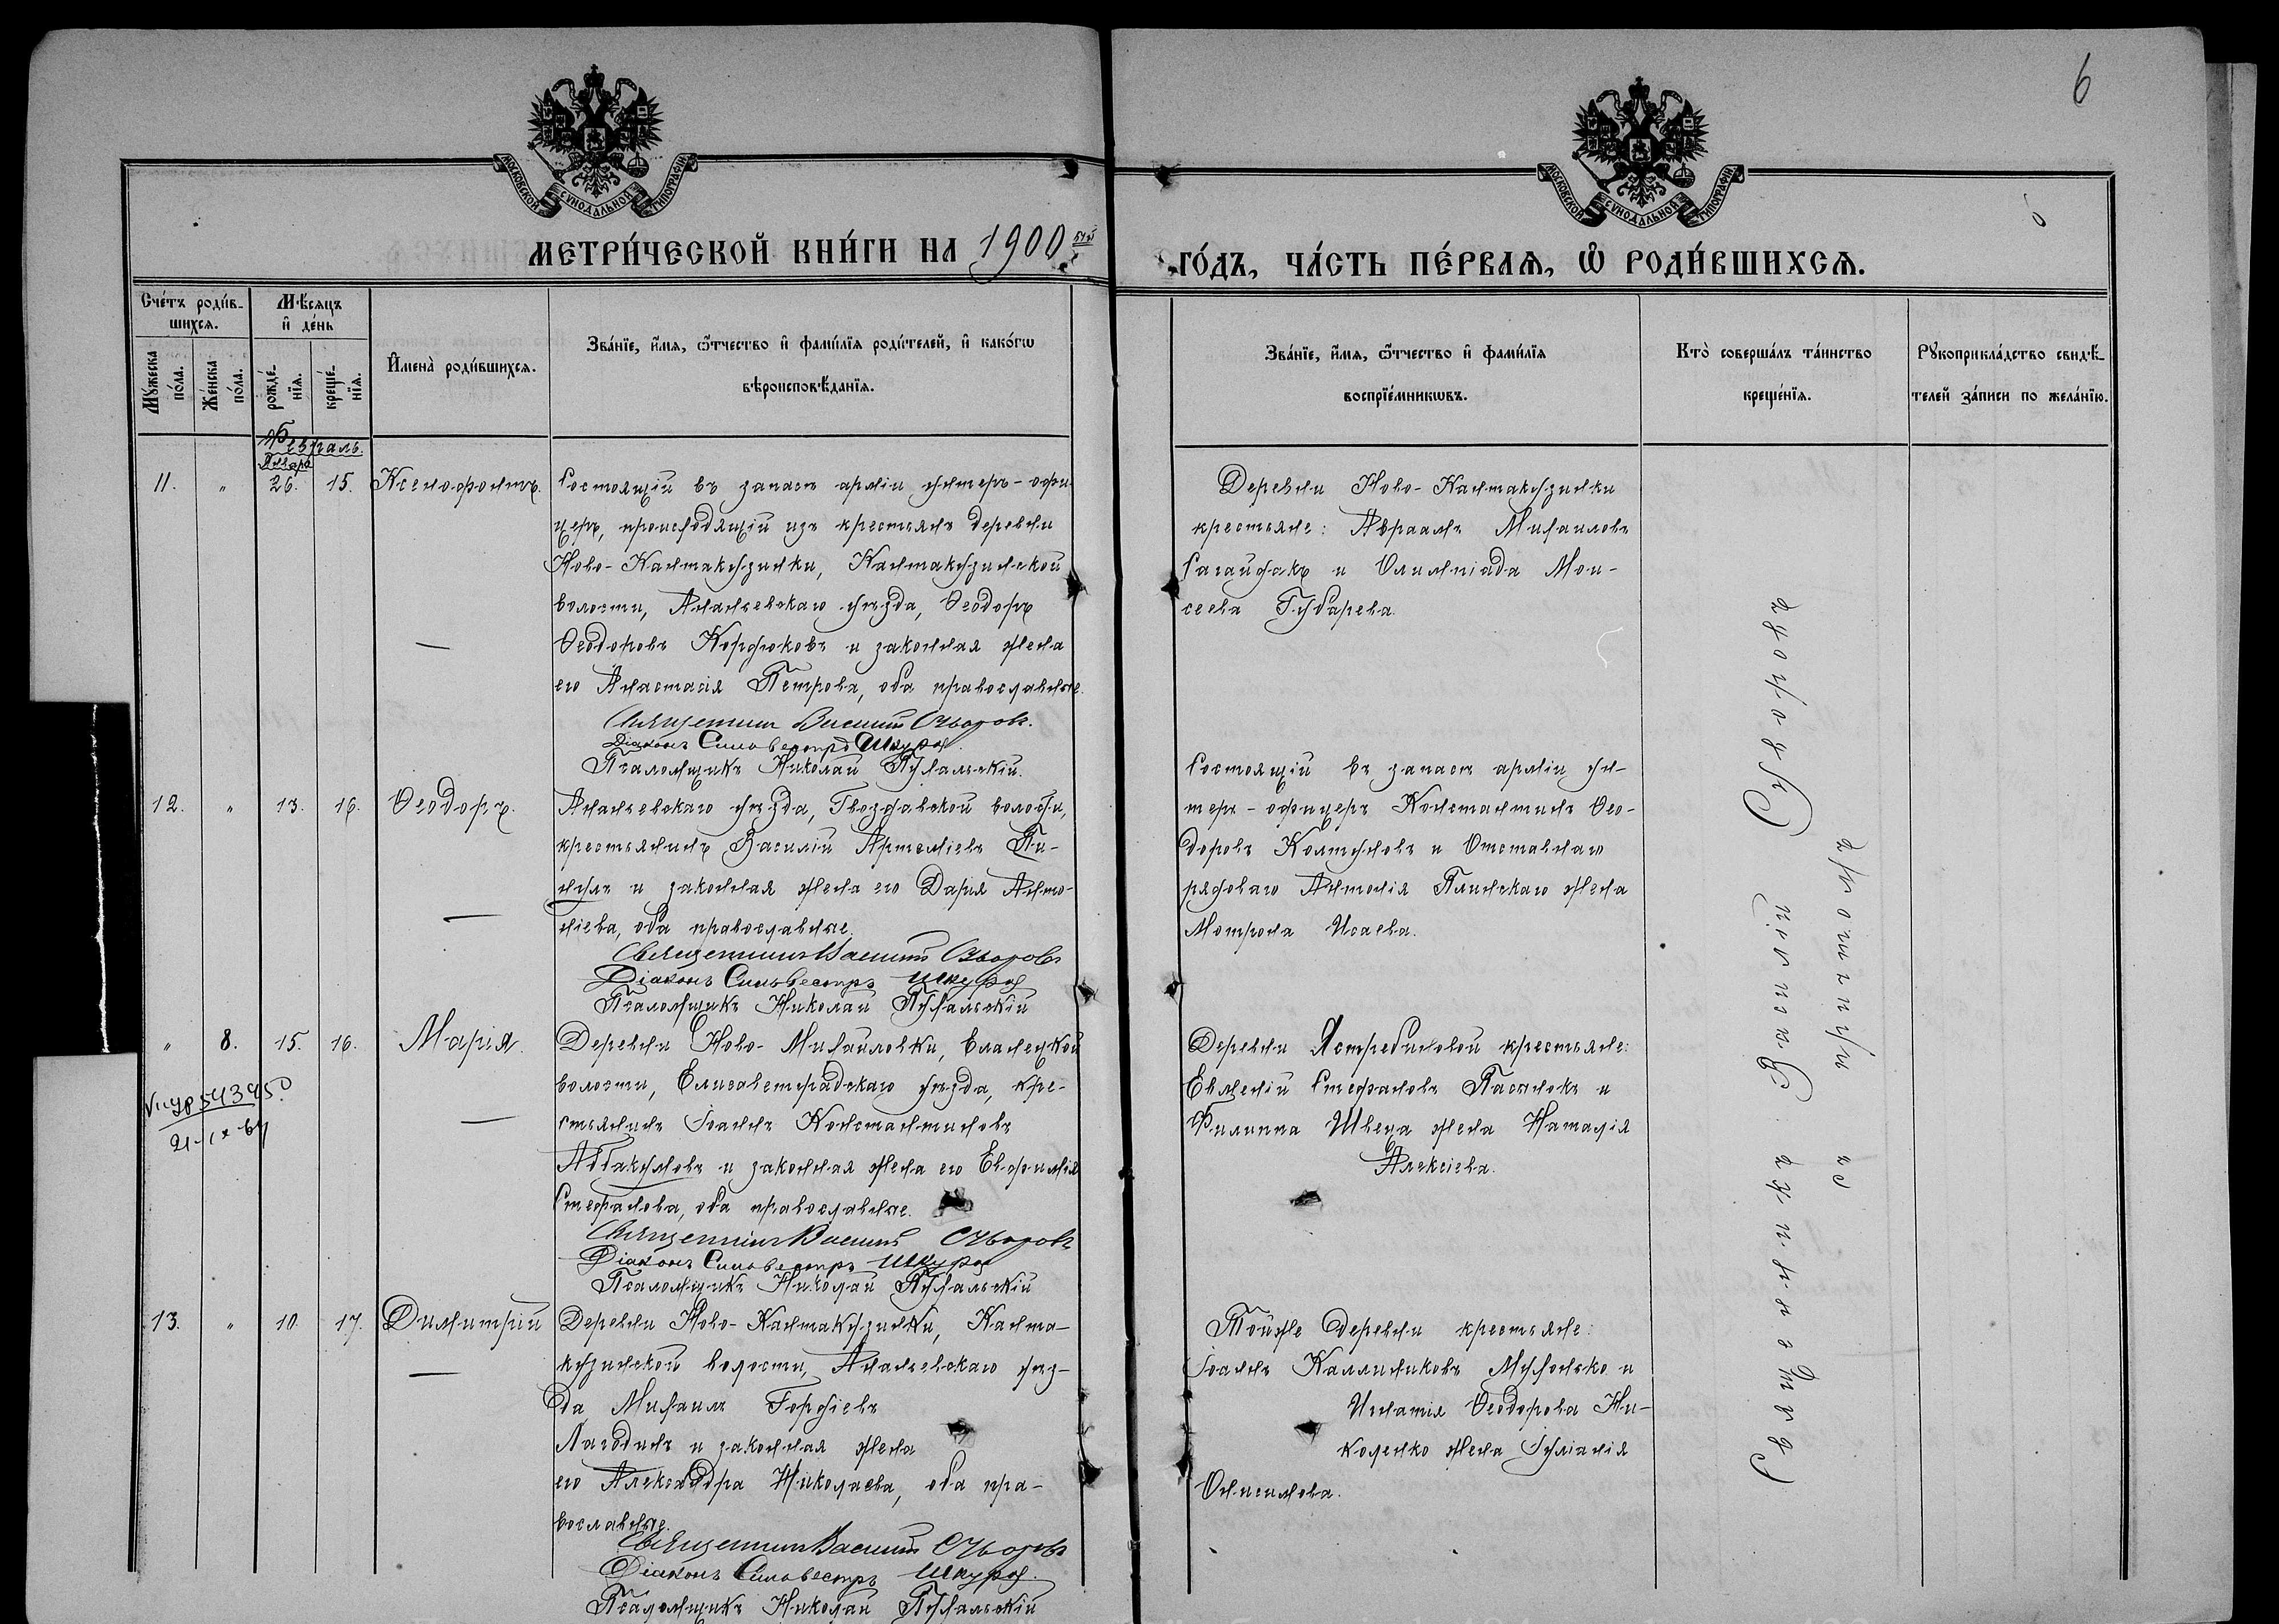 6
МОСКОВСКОЙ СУНОДАЛЬНОЙ ТИПОГРАФІИ
МОСКОВСКОЙ СУНОДАЛЬНОЙ ТИПОГРАФІИ
МЕТРИ́ЧЕСКОЙ КНИ́ГИ НА 1900 ГО́ДЪ, ЧА́СТЬ ПЕ́РВАѦ, Ѽ РОДИ́ВШИХСѦ.
Сче́тъ роди́в-
шихся.
Мѣ́сяцъ
и҆ де́нь
Мꙋ́жеска
по́ла.
Же́нска
по́ла.
рожде́-
нїя.
креще́-
нїя.
И҆мена̀ роди́вшихся.
Зва́нїе, и҆́мя, ѻ҆́тчество и҆ фами́лїя роди́телей, и҆ како́гѡ
вѣроисповѣ́данїя.
Зва́нїе, и҆́мя, ѻ҆́тчество и҆ фами́лїя
воспрїе́мникѡвъ.
Кто̀ соверша́лъ та́инство
креще́нїя.
Рꙋкоприкла́дство свидѣ́-
телей за́писи по жела́нїю.
Февраль.
Января
11. " 26. 15. Ксенофонтъ.
Состоящій въ запасѣ арміи унтеръ-офи-
церъ, происходящій изъ крестьянъ деревни
Ново-Кантакузинки, Кантакузинской
волости, Ананьевскаго уѣзда, Ѳеодоръ
Ѳеодоровъ Кордюковъ и законная жена
его Анастасія Петрова, оба православные.
Священникъ Василій Суворовъ.
Діаконъ Сильвестръ
Псаломщикъ Николай
Деревни Ново-Кантакузинки
крестьяне: Авраамъ Михаиловъ
Сагайдакъ и Олимпіада Мои-
сеева Губарева.
12. " 13. 16. Ѳеодоръ.
Ананьевскаго уѣзда, Гвоздавской волости,
крестьянинъ Василій Артеміевъ Пи-
нулъ и законная жена его Дарія Анто-
ніева, оба православные.
Священникъ Василій Суворовъ
Діаконъ Сильвестръ
Псаломщикъ Николай
Состоящій въ запасѣ арміи ун-
теръ-офицеръ Константинъ Ѳео-
доровъ Колтуновъ и Отставнаго
рядоваго Антонія Плинскаго жена
Мотрона Исаева.
" 8. 15. 16. Марія.
Деревни Ново-Михайловки, Еланецкой
волости, Елисаветградскаго уѣзда, кре-
стьянинъ Іоаннъ Константиновъ
Аббакумовъ и законная жена его Евфимія
Стефанова, оба православные.
Священникъ Василій Суворовъ
Діаконъ Сильвестръ
Псаломщикъ Николай
Деревни Ястребиновой крестьяне:
Евменій Стефановъ Пастюкъ и
Филиппа Швеца жена Наталія
Алексіева.
13. " 10. 17. Димитрій
Деревни Ново-Кантакузинки, Канта-
кузинской волости, Ананьевскаго уѣз-
да Михаилъ Гордіевъ
Лагодинъ и законная жена
его Александра Николаева, оба пра-
вославные.
Священникъ Василій Суворовъ
Діаконъ Сильвестръ
Псаломщикъ Николай
Тойже деревни крестьяне:
Іоаннъ Каллиниковъ Мухонько и
Игнатія Ѳеодорова Ни-
коленко жена Іуліанія
Онисимова.
Священникъ Василій Суворовъ
съ причтомъ